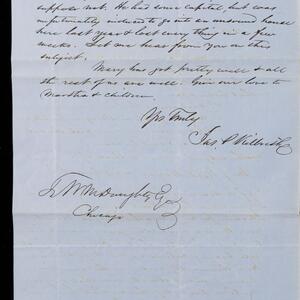 suppose not. He had some capital, but was
unfortunately induced to go into an unsound house
here last year & lost every thing in a few
weeks. Let me hear from you on this
subject.
Mary has got pretty well & all
the rest of us are well. Give our love to
Martha & children
Yrs Truly
Jas
Chicago